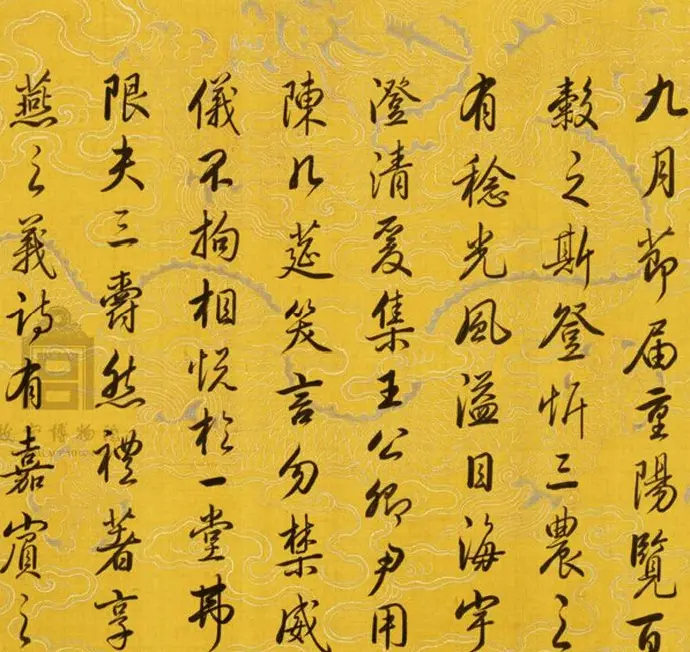 九月節屆重陽覽百
穀之斯登忻三農之
有稔光風溢目海宇
澄清爰集王公卿尹用
陳几筵笑言勿禁威
儀不拘相悅於一堂弗
限夫三爵然禮著享
燕之義詩有嘉賓之
博物